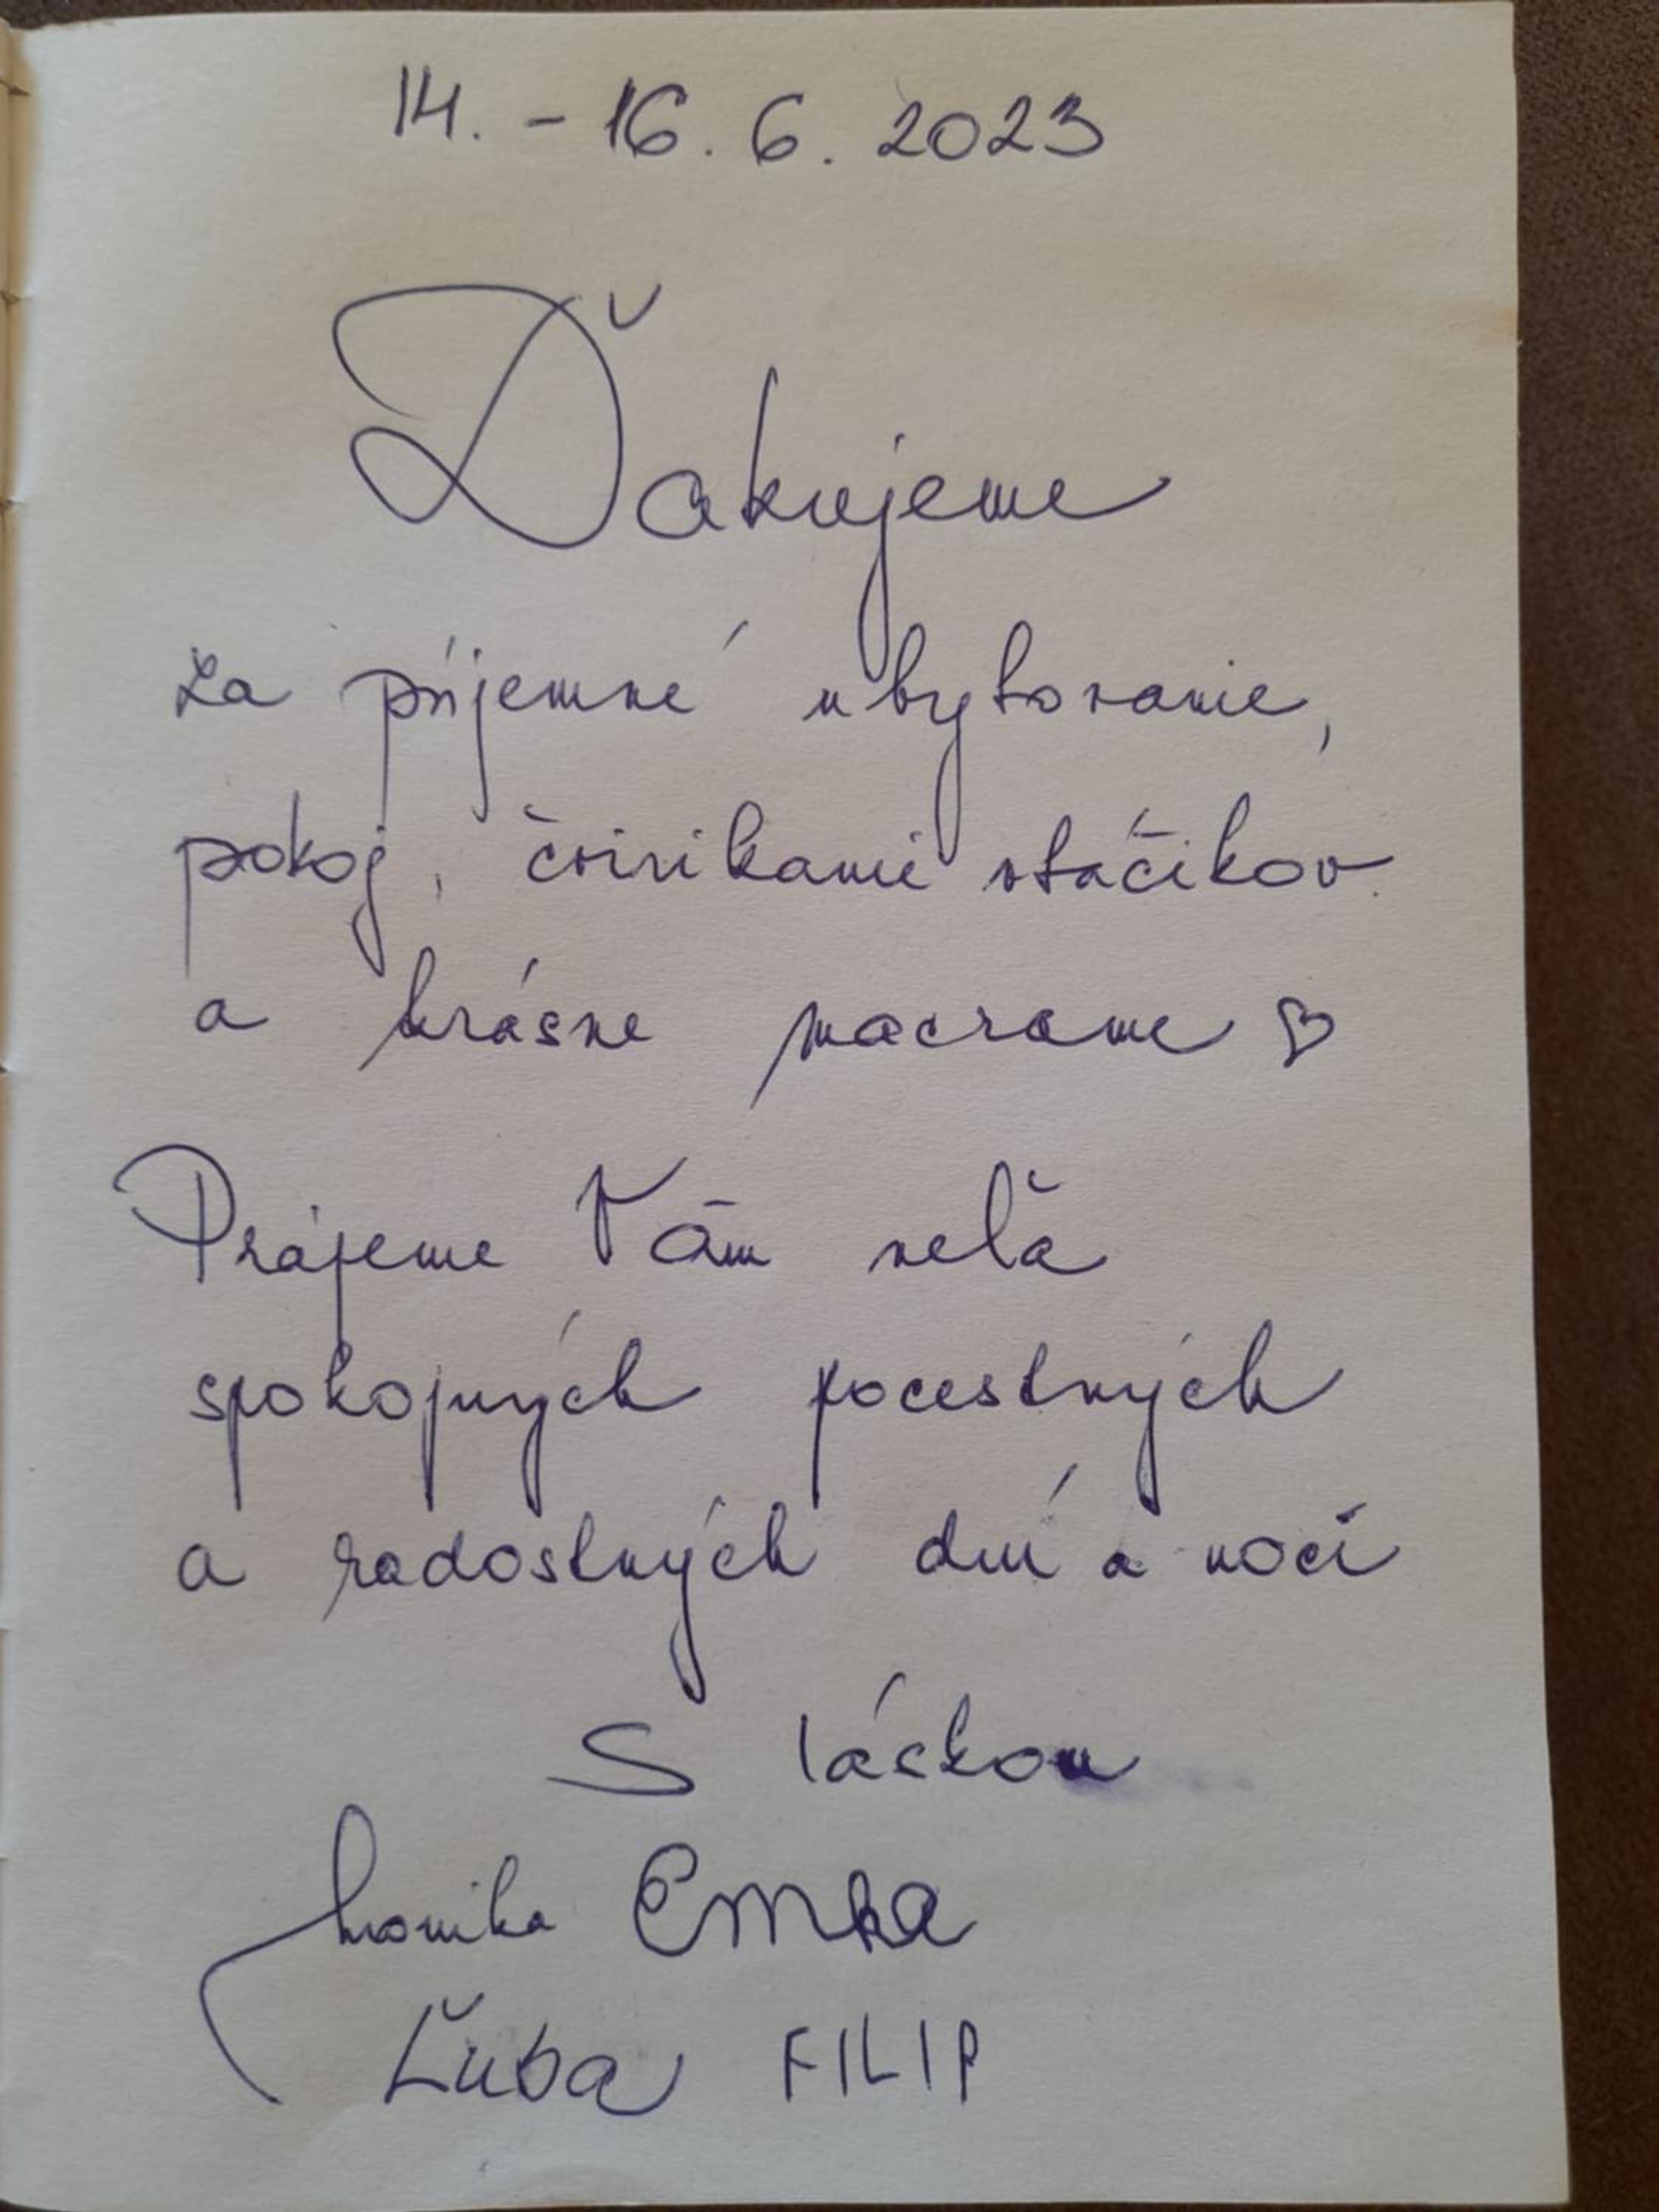 14. - 16. 6. 2023
Ďakujeme
za príjemné ubytovanie,
pokoj, čvirikanie vtáčikov
a krásne macrame ♡
Prajeme Vám veľa
spokojných pocestných
a radostných dní a nocí
S láskou
Monika Emka
Ľuba FILIP